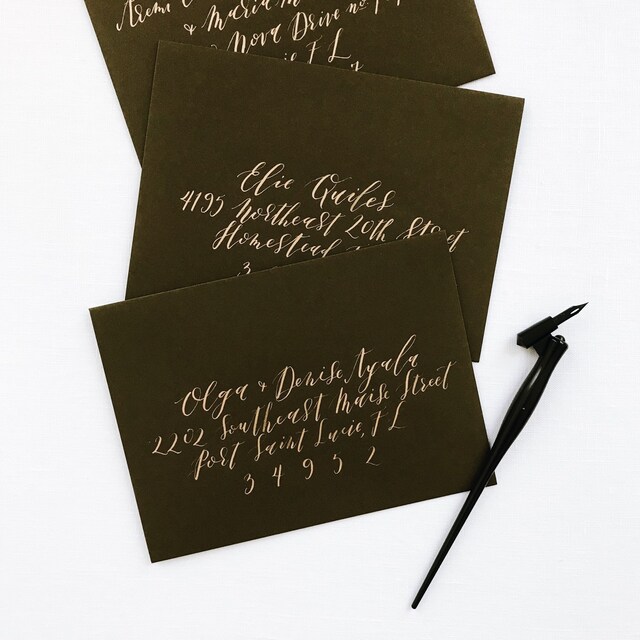 & Maria
Nova Drive no.
FL
Elie Quiles
4195 Northeast 20th Street
Homestead
3
Olga & Denise Ayala
2202 Southeast Maise Street
Port Saint Lucie, FL
3 4 9 5 2